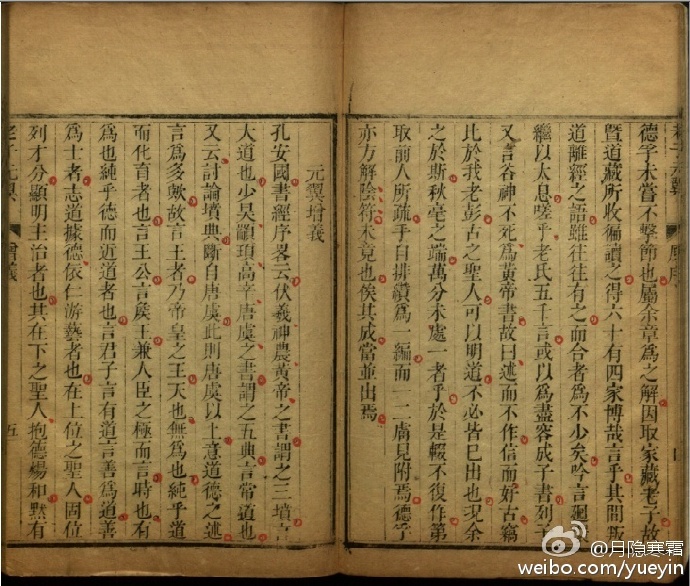 德孚未嘗不擊節也屬余章為之解因取家藏老子故
暨道藏所收徧讀之得六十有四家博哉言乎其間叛
道離經之語雖往往有之而合者為不少矣吟言迴
繼以太息嗟乎老氏五千言或以為盡容成子書列子
又言谷神不死為黃帝書故曰述而不作信而好古竊
比於我老彭古之聖人可以明道不必皆己出也況余
之於斯秋毫之端萬分未處一者乎於是輟不復作第
取前人所疏手自排纘為一編而一二膚見附焉德孚
亦方解陰符未竟也俟其成當並出焉
元翼增義
孔安國書經序畧云伏羲神農黃帝之書謂之三墳言
大道也少昊顓頊高辛唐虞之書謂之五典言常道也
又云討論墳典斷自唐虞此則唐虞以上意道德之述
言為多歟故言王者乃帝皇之王天也無為也純乎道
而化育者也言王公言矦王兼人臣之極而言時也有
為也純乎德而近道者也言君子言有道言善為道善
為士者志道據德依仁游藝者也在上位之聖人固位
列才分顯明主治者也其在下之聖人抱德煬和默有
老子元翼
增義
五
@月隐寒霜
weibo.com/yueyin